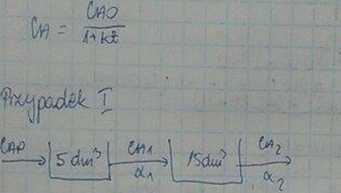 CA = CAO / 1+kt̄
Przypadek I
CAO 5 dm³ CA1 α1 15 dm³ CA2 α2